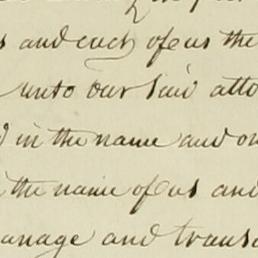 and each of us the
unto our said atto
in the name and on
the name of us and
anage and transa